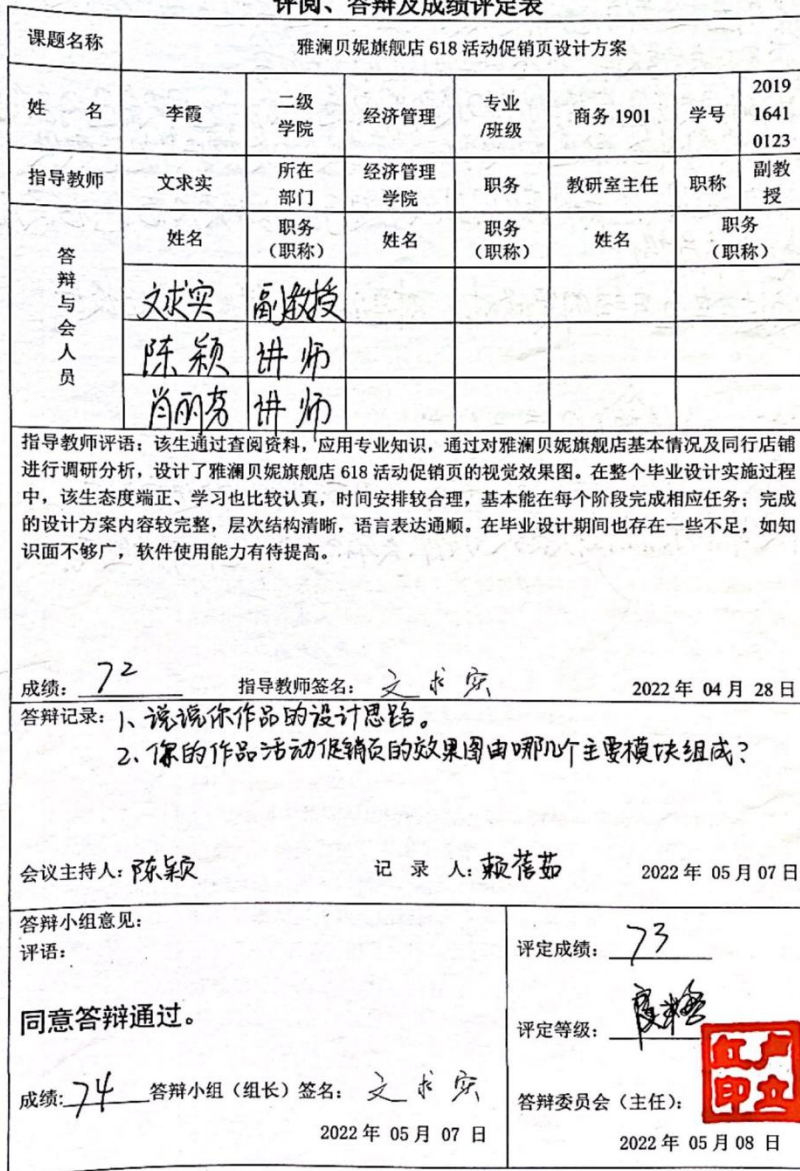 评阅、答辩及成绩评定表
课题名称 雅澜贝妮旗舰店 618 活动促销页设计方案
姓 名 李霞 二级学院 经济管理 专业/班级 商务 1901 学号 2019 1641 0123
指导教师 文求实 所在部门 经济管理学院 职务 教研室主任 职称 副教授
答辩与会人员 姓名 职务（职称） 姓名 职务（职称） 姓名 职务（职称）
文求实 副教授
陈颖 讲师
肖丽芳 讲师
指导教师评语：该生通过查阅资料，应用专业知识，通过对雅澜贝妮旗舰店基本情况及同行店铺
进行调研分析，设计了雅澜贝妮旗舰店 618 活动促销页的视觉效果图。在整个毕业设计实施过程
中，该生态度端正、学习也比较认真，时间安排较合理，基本能在每个阶段完成相应任务；完成
的设计方案内容较完整，层次结构清晰，语言表达通顺。在毕业设计期间也存在一些不足，如知
识面不够广，软件使用能力有待提高。
成绩：72 指导教师签名：文求实 2022 年 04 月 28 日
答辩记录：1、说说你作品的设计思路。
2、你的作品活动促销页的效果图由哪几个主要模块组成？
会议主持人：陈颖 记 录 人：赖蓓茹 2022 年 05 月 07 日
答辩小组意见：
评语：
同意答辩通过。
成绩：74 答辩小组（组长）签名：文求实
2022 年 05 月 07 日
评定成绩：73
评定等级：
答辩委员会（主任）：
2022 年 05 月 08 日